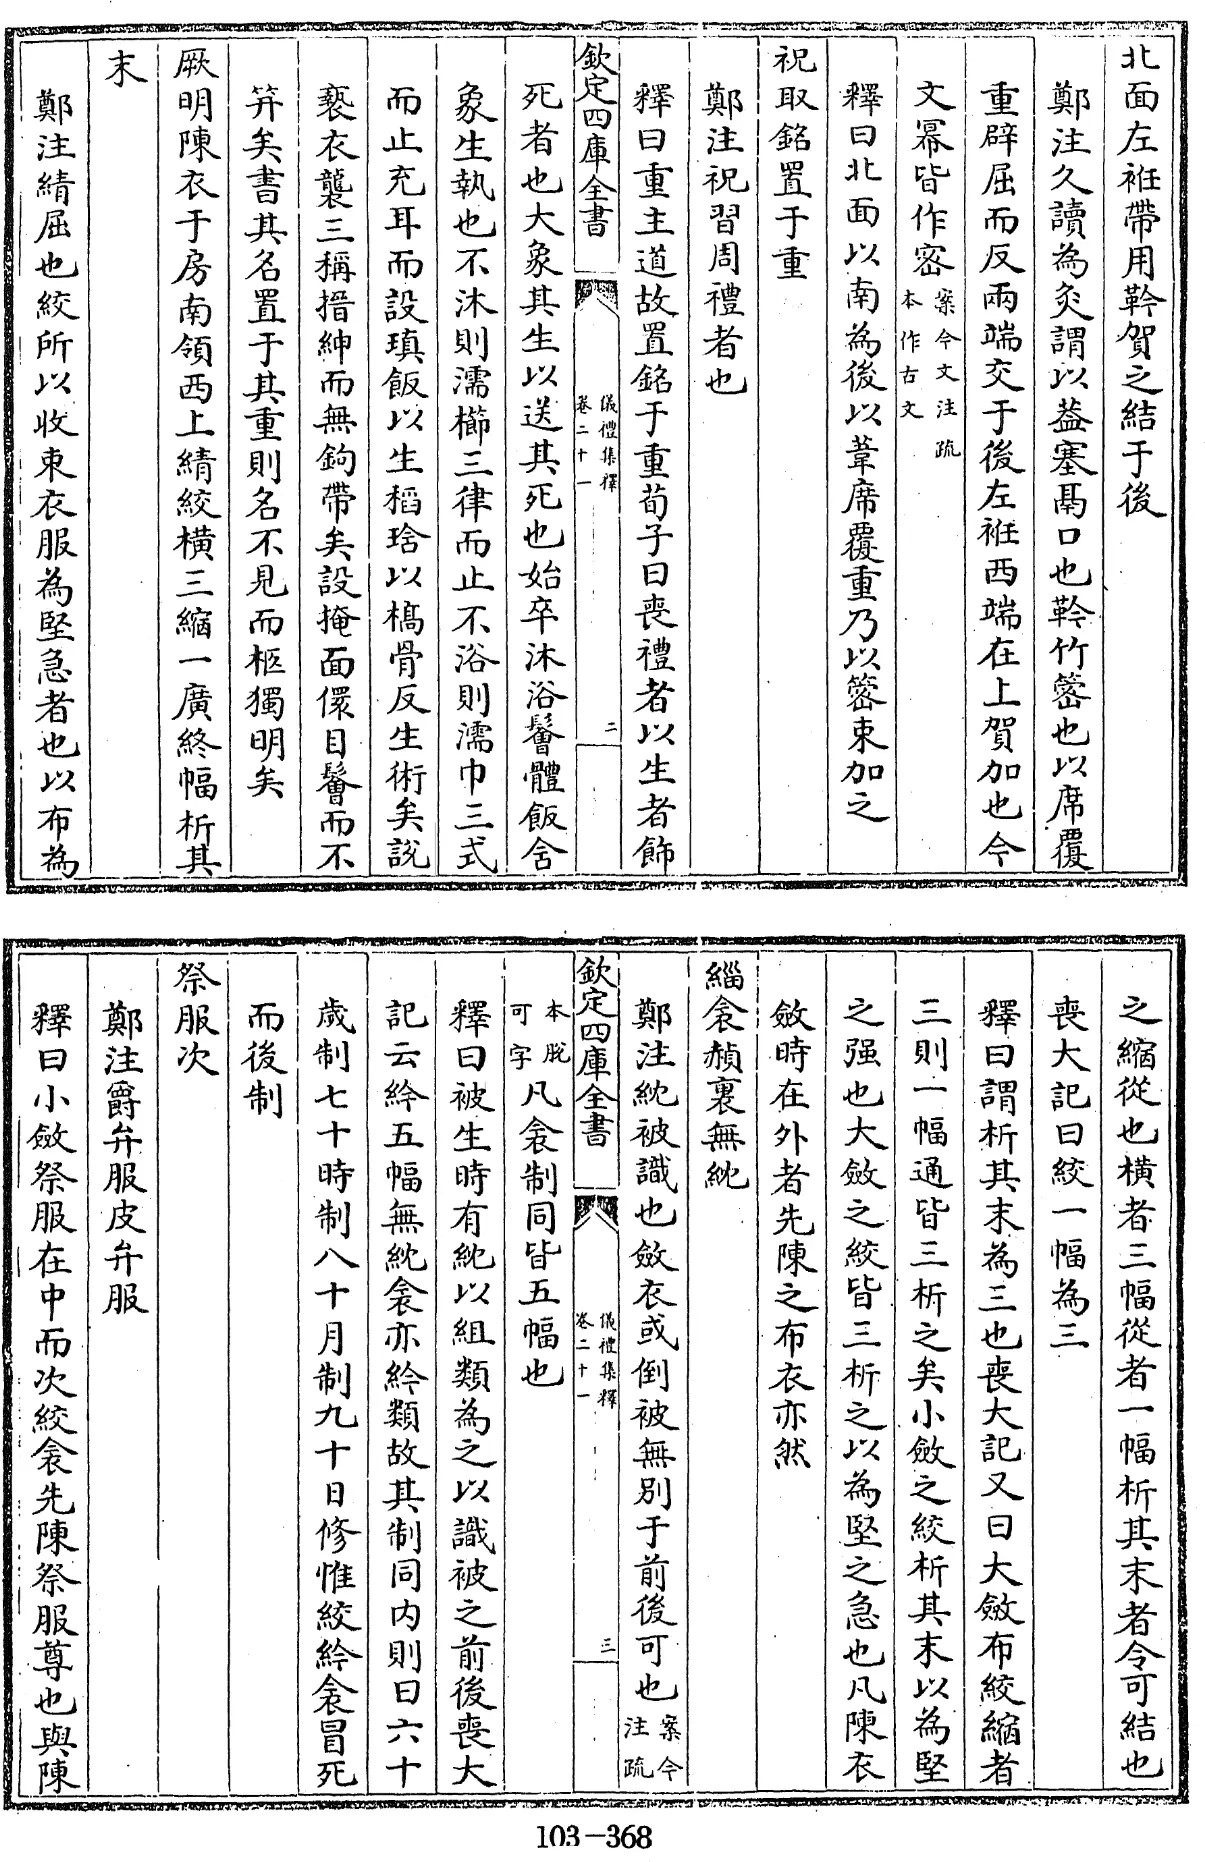 北面左衽帶用靲賀之結于後
鄭注久讀為灸謂以葢塞鬲口也靲竹䈼也以席覆
重辟屈而反兩端交于後左衽西端在上賀加也今
文冪皆作密案今文注疏本作古文
釋曰北面以南為後以葦席覆重乃以䈼束加之
祝取銘置于重
鄭注祝習周禮者也
釋曰重主道故置銘于重荀子曰喪禮者以生者飾
欽定四庫全書 儀禮集釋卷二十一 二
死者也大象其生以送其死也始卒沐浴鬠體飯含
象生執也不沐則濡櫛三律而止不浴則濡巾三式
而止充耳而設瑱飯以生稻琀以槁骨反生術矣說
褻衣襲三稱搢紳而無鉤帶矣設掩面儇目鬠而不
笄矣書其名置于其重則名不見而柩獨明矣
厥明陳衣于房南領西上綪絞橫三縮一廣終幅析其
末
鄭注綪屈也絞所以收束衣服為堅急者也以布為
之縮從也橫者三幅從者一幅析其末者令可結也
喪大記曰絞一幅為三
釋曰謂析其末為三也喪大記又曰大斂布絞縮者
三則一幅通皆三析之矣小斂之絞析其末以為堅
之强也大斂之絞皆三析之以為堅之急也凡陳衣
斂時在外者先陳之布衣亦然
緇衾赬裏無紞
鄭注紞被識也斂衣或倒被無別于前後可也案今注疏
欽定四庫全書 儀禮集釋卷二十一 三
本脫可字凡衾制同皆五幅也
釋曰被生時有紞以組類為之以識被之前後喪大
記云紟五幅無紞衾亦紟類故其制同内則曰六十
歲制七十時制八十月制九十日修惟絞紟衾冒死
而後制
祭服次
鄭注爵弁服皮弁服
釋曰小斂祭服在中而次絞衾先陳祭服尊也與陳
103-368